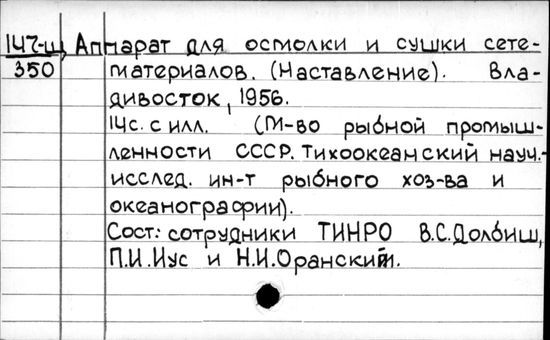 147-щ, Аппарат для осмолки и сушки сете-
350 материалов. (Наставление). Вла-
дивосток, 1956.
14с. с илл. (М-во рыбной промыш-
ленности СССР. Тихоокеанский науч.-
исслед. ин-т рыбного хоз-ва и
океанографии).
Сост: сотрудники ТИНРО В.С.Долбиш,
П.И.Иус и Н.И.Оранский.